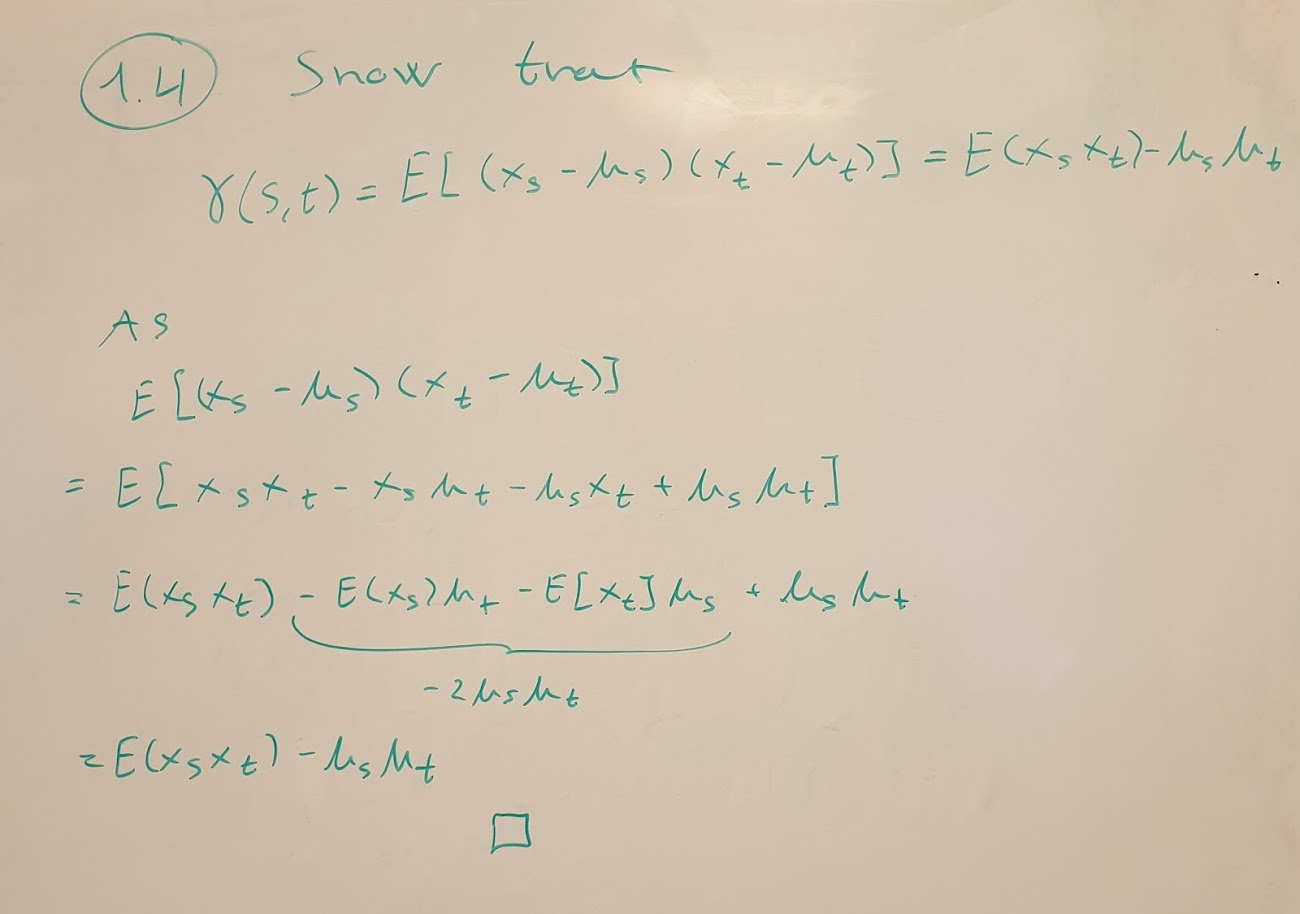 1.4 Show that
γ(s,t) = E[(x_s - μ_s)(x_t - μ_t)] = E(x_s x_t) - μ_s μ_t
As
E[(x_s - μ_s)(x_t - μ_t)]
= E[x_s x_t - x_s μ_t - μ_s x_t + μ_s μ_t]
= E(x_s x_t) - E(x_s)μ_t - E[x_t]μ_s + μ_s μ_t
-2μ_s μ_t
= E(x_s x_t) - μ_s μ_t
□